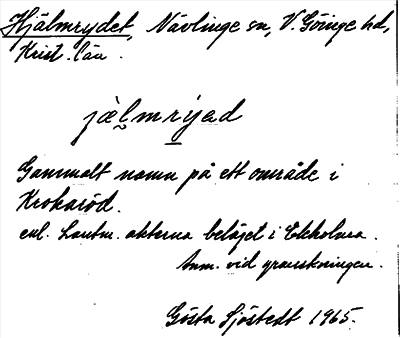 Hjälmrydet, Nävlinge sn, V. Göinge hd,
Krist. län.
jäl̬mrýəd
Gammalt namn på ett område i
Krokaröd.
enl. Lantm. akterna beläget i Ekeholma.
Anm. vid granskningen.
Gösta Sjöstedt 1965.